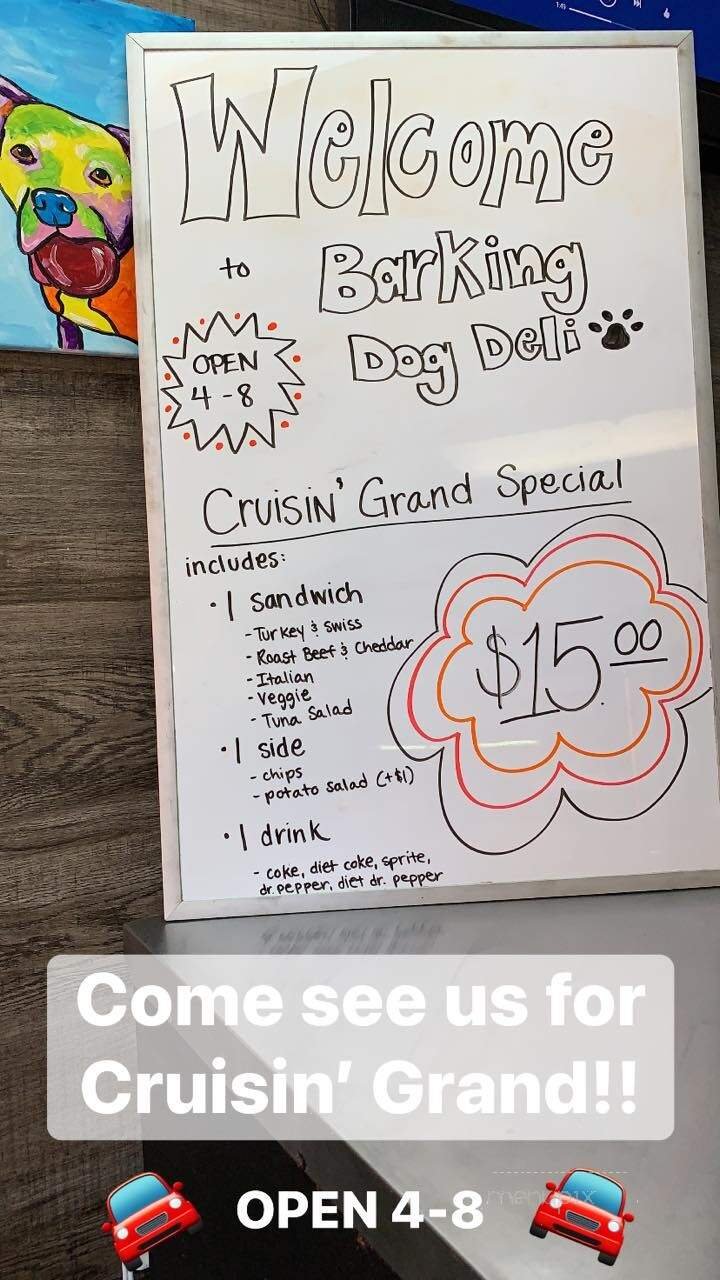 1:49
Welcome
to Barking
Dog Deli
OPEN
4-8
Cruisin' Grand Special
includes:
• 1 sandwich
- Turkey & Swiss
- Roast Beef & Cheddar
- Italian
- Veggie
- Tuna Salad
• 1 side
- chips
- potato salad (+$1)
• 1 drink
- coke, diet coke, sprite,
dr. pepper, diet dr. pepper
$15.00
Come see us for
Cruisin' Grand!!
OPEN 4-8
menupix